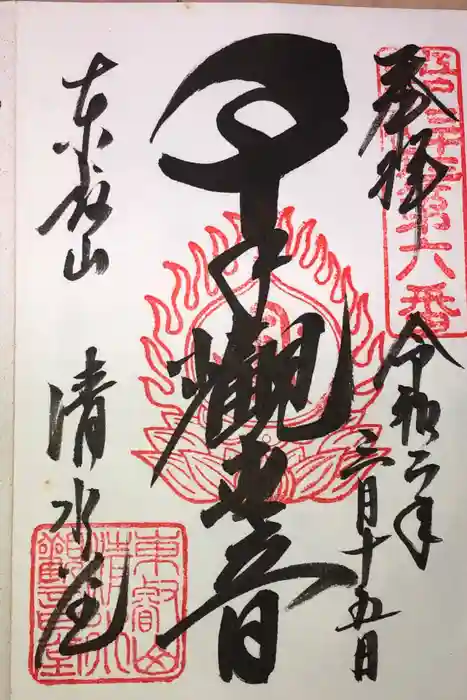 奉拝
令和二年
三月十五日
千手觀世音
東叡山
清水堂
第六番
東叡山
清水
觀音堂